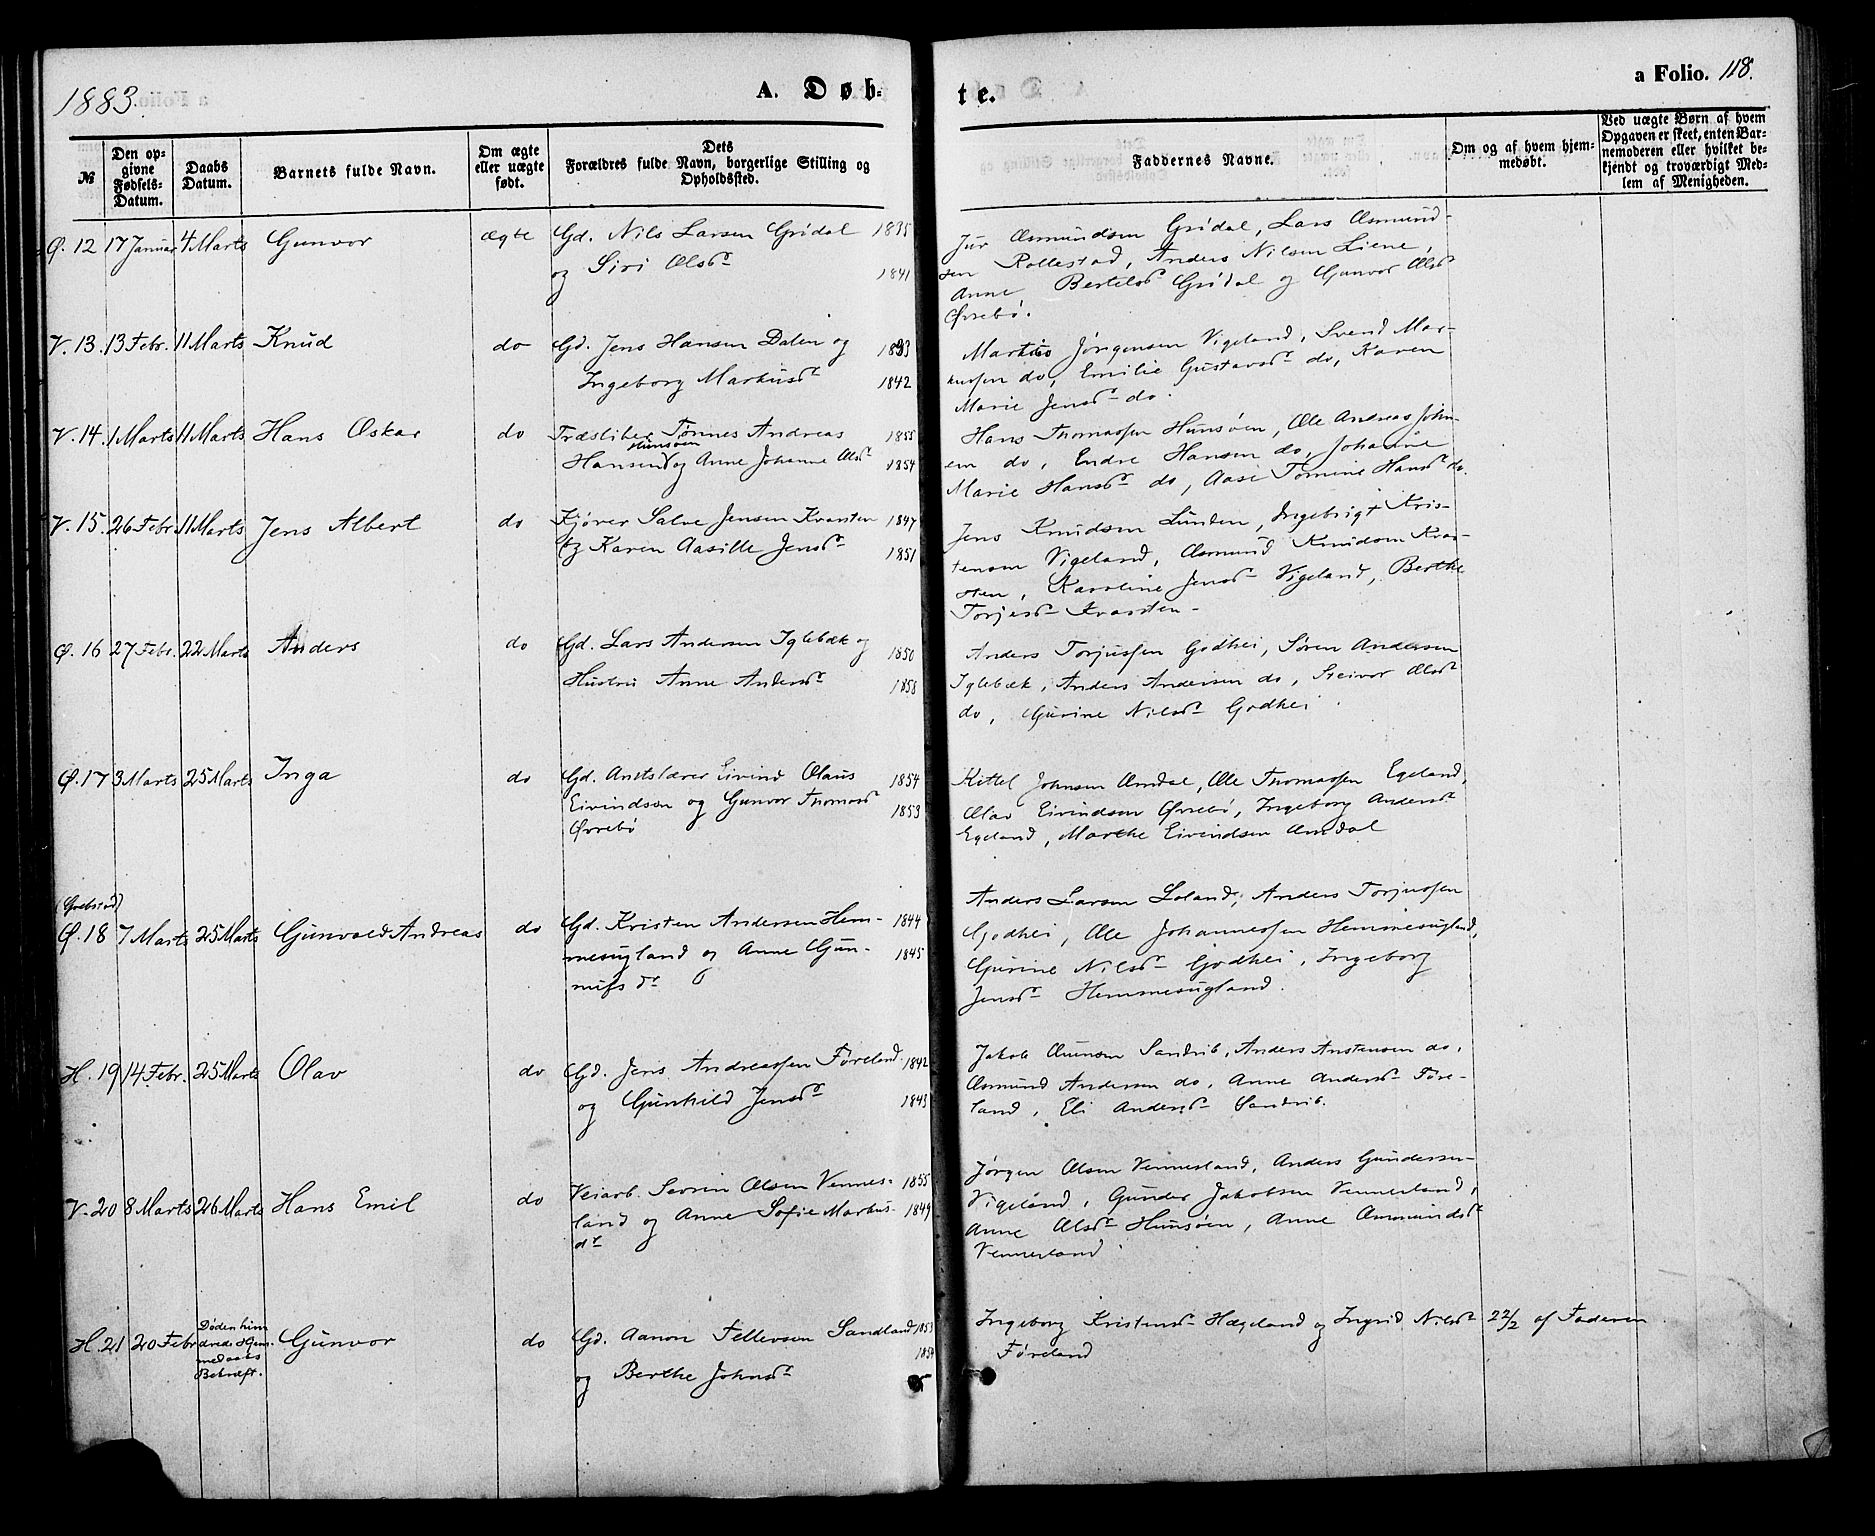 1883.
A. Døb-
te.
a Folio. 118.
№
Den op-
givne
Fødsels-
Datum.
Daabs
Datum.
Barnets fulde Navn.
Om ægte
eller uægte
født.
Dets
Forældres fulde Navn, borgerlige Stilling og
Opholdssted.
Faddernes Navne.
Om og af hvem hjem-
medøbt.
Ved uægte Børn af hvem
Opgaven er skeet, enten Bar-
nemoderen eller hvilket be-
kjendt og troværdigt Med-
lem af Menigheden.
Ø. 12 17 Januar 4 Marts Gunvor ægte Gd. Nils Larsen Grødal 1835
og Siri Olsdr 1841
Jur Asmundsen Grødal, Lars Asmund-
sen Rollestad, Anders Nilsen Liene,
Anne Bertelsd Grødal og Gunvor Olsd
Øvrebø.
V. 13. 13 Febr. 11 Marts Knud do Gd. Jens Hansen Dalen og
Ingeborg Markusdr 1842
Markus Jørgensen Vigeland, Svend Mar-
kussen do, Emilie Gustavsdr do, Karen
Marie Jensdr do.
V. 14. 1 Marts 11 Marts Hans Oskar do Træsliber Tønnes Andreas 1855
Hunsøen
Hansen og Anne Johanne Olsdr 1854
Hans Thomassen Hunsøen, Ole Andreas John-
sen do, Endre Hansen do, Johanne
Marie Hansdr do, Aase Tomine Hansdr do.
V. 15. 26 Febr. 11 Marts Jens Albert do Kjører Salve Jensen Kvarsten 1847
og Karen Aasille Jensdr 1851
Jens Knudsen Lunden, Ingebrigt Kris-
tensen Vigeland, Asmund Knudsen Kvar-
sten, Karoline Jensdr Vigeland, Berthe
Torjesdr Kvarsten.
Ø. 16 27 Febr. 22 Marts Anders do Gd. Lars Andersen Iglebæk og 1850
Hustru Anne Andersdr 1858
Anders Torjussen Godhei, Søren Andersen
Iglebæk, Anders Andersen do, Sveivor Olsdr
do, Gurine Nilsdr Godhei.
Ø. 17 3 Marts 25 Marts Inga do Gd. Amtslærer Eivind Olaus 1854
Eivindsen og Gunvor Thomasdr 1853
Øvrebø
Kittel Johnsen Omdal, Ole Thomassen Egeland,
Olav Eivindsen Øvrebø, Ingeborg Andersdr
Egeland, Marthe Eivindsen Omdal
Ø. 18 7 Marts 25 Marts Gunvald Andreas do Gd. Kristen Andersen Hem- 1844
mesugland og Anne Gun- 1845
nufsdr
Anders Larsen Loland, Anders Torjussen
Godhei, Ole Johannessen Hemmesugland,
Gurine Nilsdr Godhei, Ingeborg
Jensdr Hemmesugland.
H. 19 14 Febr. 25 Marts Olav do Gd. Jens Andreassen Føreland 1842
og Gunhild Jensdr 1843
Jakob Aunsen Sandrib, Anders Anstensen do,
Asmund Andersen do, Anne Andersdr Føre-
land, Eli Andersdr Sandrib.
V. 20 8 Marts 26 Marts Hans Emil do Veiarb. Søren Olsen Vennes- 1855
land og Anne Sofie Markus- 1849
dr
Jørgen Olsen Vennesland, Anders Gundersen
Vigeland, Gunder Jakobsen Vennesland,
Anne Olsdr Hunsøen, Anne Asmundsdr
Vennesland
H. 21 20 Febr Døden hin-
drede Hjem-
medaabs
Bekræft.
Gunvor do Gd. Aanon Tellevsen Sandland 1853
og Berthe Johnsdr 1854
Ingeborg Kristensdr Hægeland og Ingrid Nilsdr
Føreland
22/2 af Faderen